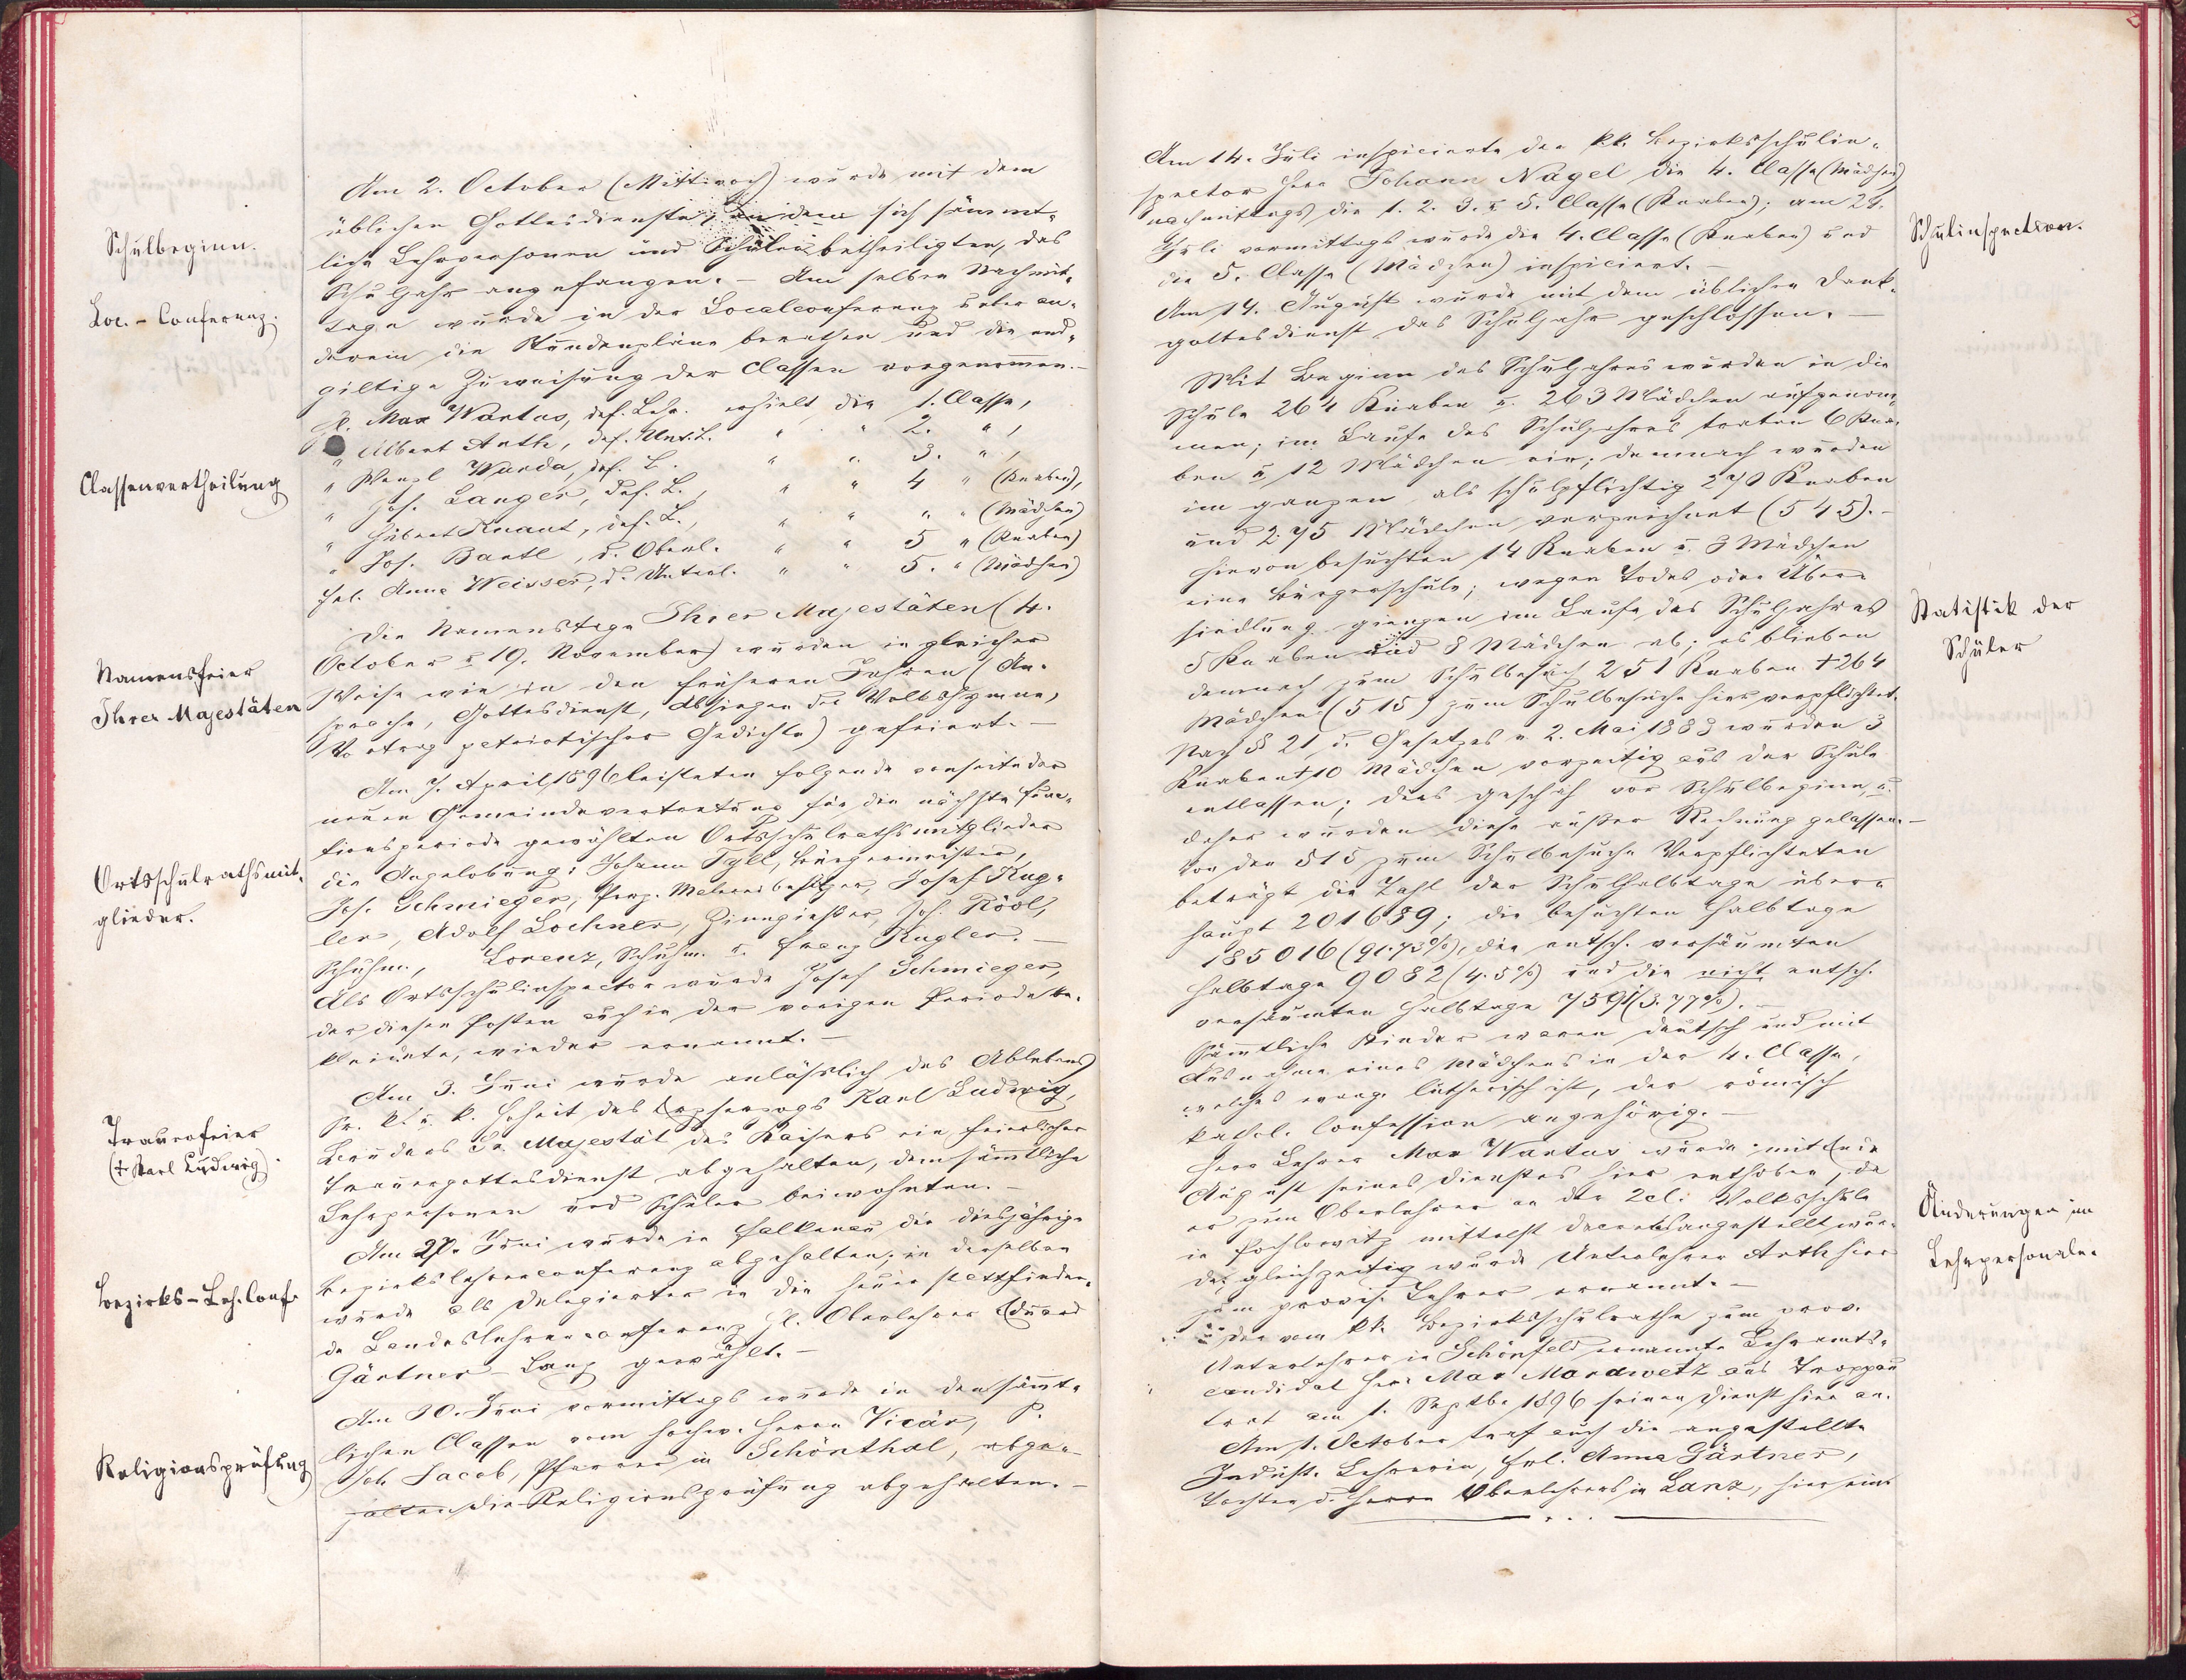 Schulbeginn.
Loc.-Conferenz.
Classenvertheilung
Namensfeier
Ihrer Majestäten
Ortsschulrathsmit-
glieder.
Trauerfeier
(† Karl Ludwig).
Bezirks-Leh. Conf.
Religionsprüfung
Am 2. October (Mittwoch) wurde mit dem
üblichen Gottesdienste, an dem sich sämmt-
liche Lehrpersonen und Schüler betheiligten, das
Schuljahr angefangen. – Am selben Nachmit-
tage wurde in der Localconferenz unter an-
derem die Stundenpläne berathen und die end-
giltige Zuweisung der Classen vorgenommen. –
H. Max Wantus, def. Lehr. erhielt die 1. Classe,
" Albert Anth, def. Unt. L. " " 2. ",
" Wenzl Warda, def. L. " " 3. ",
" Jos. Langer, def. L., " " 4 " (Knaben),
" Hubert Knaut, def. L., " " " " (Mädchen)
" Jos. Bartl, d. Oberl. " " 5 " (Knaben)
Frl. Anna Weisser, d. Unterl. " " 5. " (Mädchen)
Die Namenstage Ihrer Majestäten (4.
October u. 19. November) wurden in gleicher
Weise wie in den früheren Jahren (An-
sprache, Gottesdienst, Absingen der Volkshymne,
Vortrag patriotischer Gedichte) gefeiert. –
Am 7. April 1896 leisteten folgende vonseite der
neuen Gemeindevertretung für die nächste Func-
tionsperiode gewählten Ortsschulrathsmitglieder
die Angelobung: Johann Tyll, Bürgermeister,
Jos. Schmieger, Josef Kug-
ler, Adolf Lochner, Zinngießer, Joh. Röol,
Schuhm., Lorenz, Schuhm. u. Franz Kugler. –
Als Ortsschulinspector wurde Josef Schmieger,
der diesen Posten auch in der vorigen Periode be-
kleidete, wieder ernannt. –
Am 3. Juni wurde anlässlich des Ablebens
Sr. k. u. k. Hoheit des Erzherzogs Karl Ludwig,
Bruders Sr. Majestät des Kaisers ein feierlicher
Trauergottesdienst abgehalten, dem sämtliche
Lehrpersonen und Schüler beiwohnten. –
Am 27. Juni wurde in Falkenau die diesjährige
Bezirkslehrerconferenz abgehalten; in derselben
wurde als Delegierter in die heuer stattfinden-
de Landeslehrerconferenz H. Oberlehrer Eduard
Gärtner – Lanz gewählt. –
Am 30. Juni vormittags wurde in den sämt-
lichen Classen vom hochw. Herrn Vicär, P.
Joh. Jacob, Pfarrer in Schönthal, abge-
halten die Religionsprüfung abgehalten. –
Am 14. Juli inspicierte der k.k. Bezirksschulin-
spector Herr Johann Nagel die 4. Classe (Mädchen)
nachmittags die 1. 2. 3. u. 5. Classe (Knaben); am 21.
Juli vormittags wurde die 4. Classe (Knaben) und
die 5. Classe (Mädchen) inspiciert. –
Am 14. August wurde mit dem üblichen Dank-
gottesdienst das Schuljahr geschlossen. –
Mit Beginn des Schuljahres wurden in die
Schule 264 Knaben u. 263 Mädchen aufgenom-
men; im Laufe des Schuljahres traten 6 Kna-
ben u. 12 Mädchen ein; demnach wurden
im ganzen als schulpflichtig 270 Knaben
und 275 Mädchen verzeichnet (545). –
Hievon besuchten 14 Knaben u. 3 Mädchen
eine Bürgerschule; wegen Todes oder Über-
siedlung giengen im Laufe des Schuljahres
5 Knaben und 8 Mädchen ab; es blieben
demnach zum Schulbesuch 251 Knaben + 264
Mädchen (515) zum Schulbesuche hier verpflichtet.
Nach § 21 d. Gesetzes v. 2. Mai 1883 wurden 3
Knaben + 10 Mädchen vorzeitig aus der Schule
entlassen; dies geschah vor Schulbeginn, u.
daher wurden diese außer Rechnung gelassen. –
Von den 515 zum Schulbesuche Verpflichteten
beträgt die Zahl der Schulhalbtage über-
haupt 201689; die besuchten Halbtage
185016 (91.73%), die entsch. versäumten
Halbtage 9082 (4.5%) und die nicht entsch.
versäumten Halbtage 7591 (3.77%). –
Sämtliche Kinder waren deutsch und mit
Ausnahme eines Mädchens in der 4. Classe,
welches evang. lutherisch ist, der römisch
kathol. Confession angehörig. –
Herr Lehrer Max Wantus wurde mit Ende
August seines Dienstes hier enthoben, da
er zum Oberlehrer an der 2cl. Volksschule
in Pochlowitz mittelst Decrets angestellt wur-
de; gleichzeitig wurde Unterlehrer Anth hier
zum provis. Lehrer ernannt. –
Der vom k.k. Bezirksschulrathe zum prov.
Unterlehrer in Schönfeld ernannte Lehramts-
candidat Herr Max Morawetz aus Troppau
trat am 1. Septbr. 1896 seinen Dienst hier an.
Am 1. October traf auch die angestellte
Indust. Lehrerin, Frl. Anna Gärtner,
Tochter d. Herrn Oberlehrers in Lanz, hier ein.
Schulinspection.
Statistik der
Schüler
Änderungen im
Lehrpersonale.